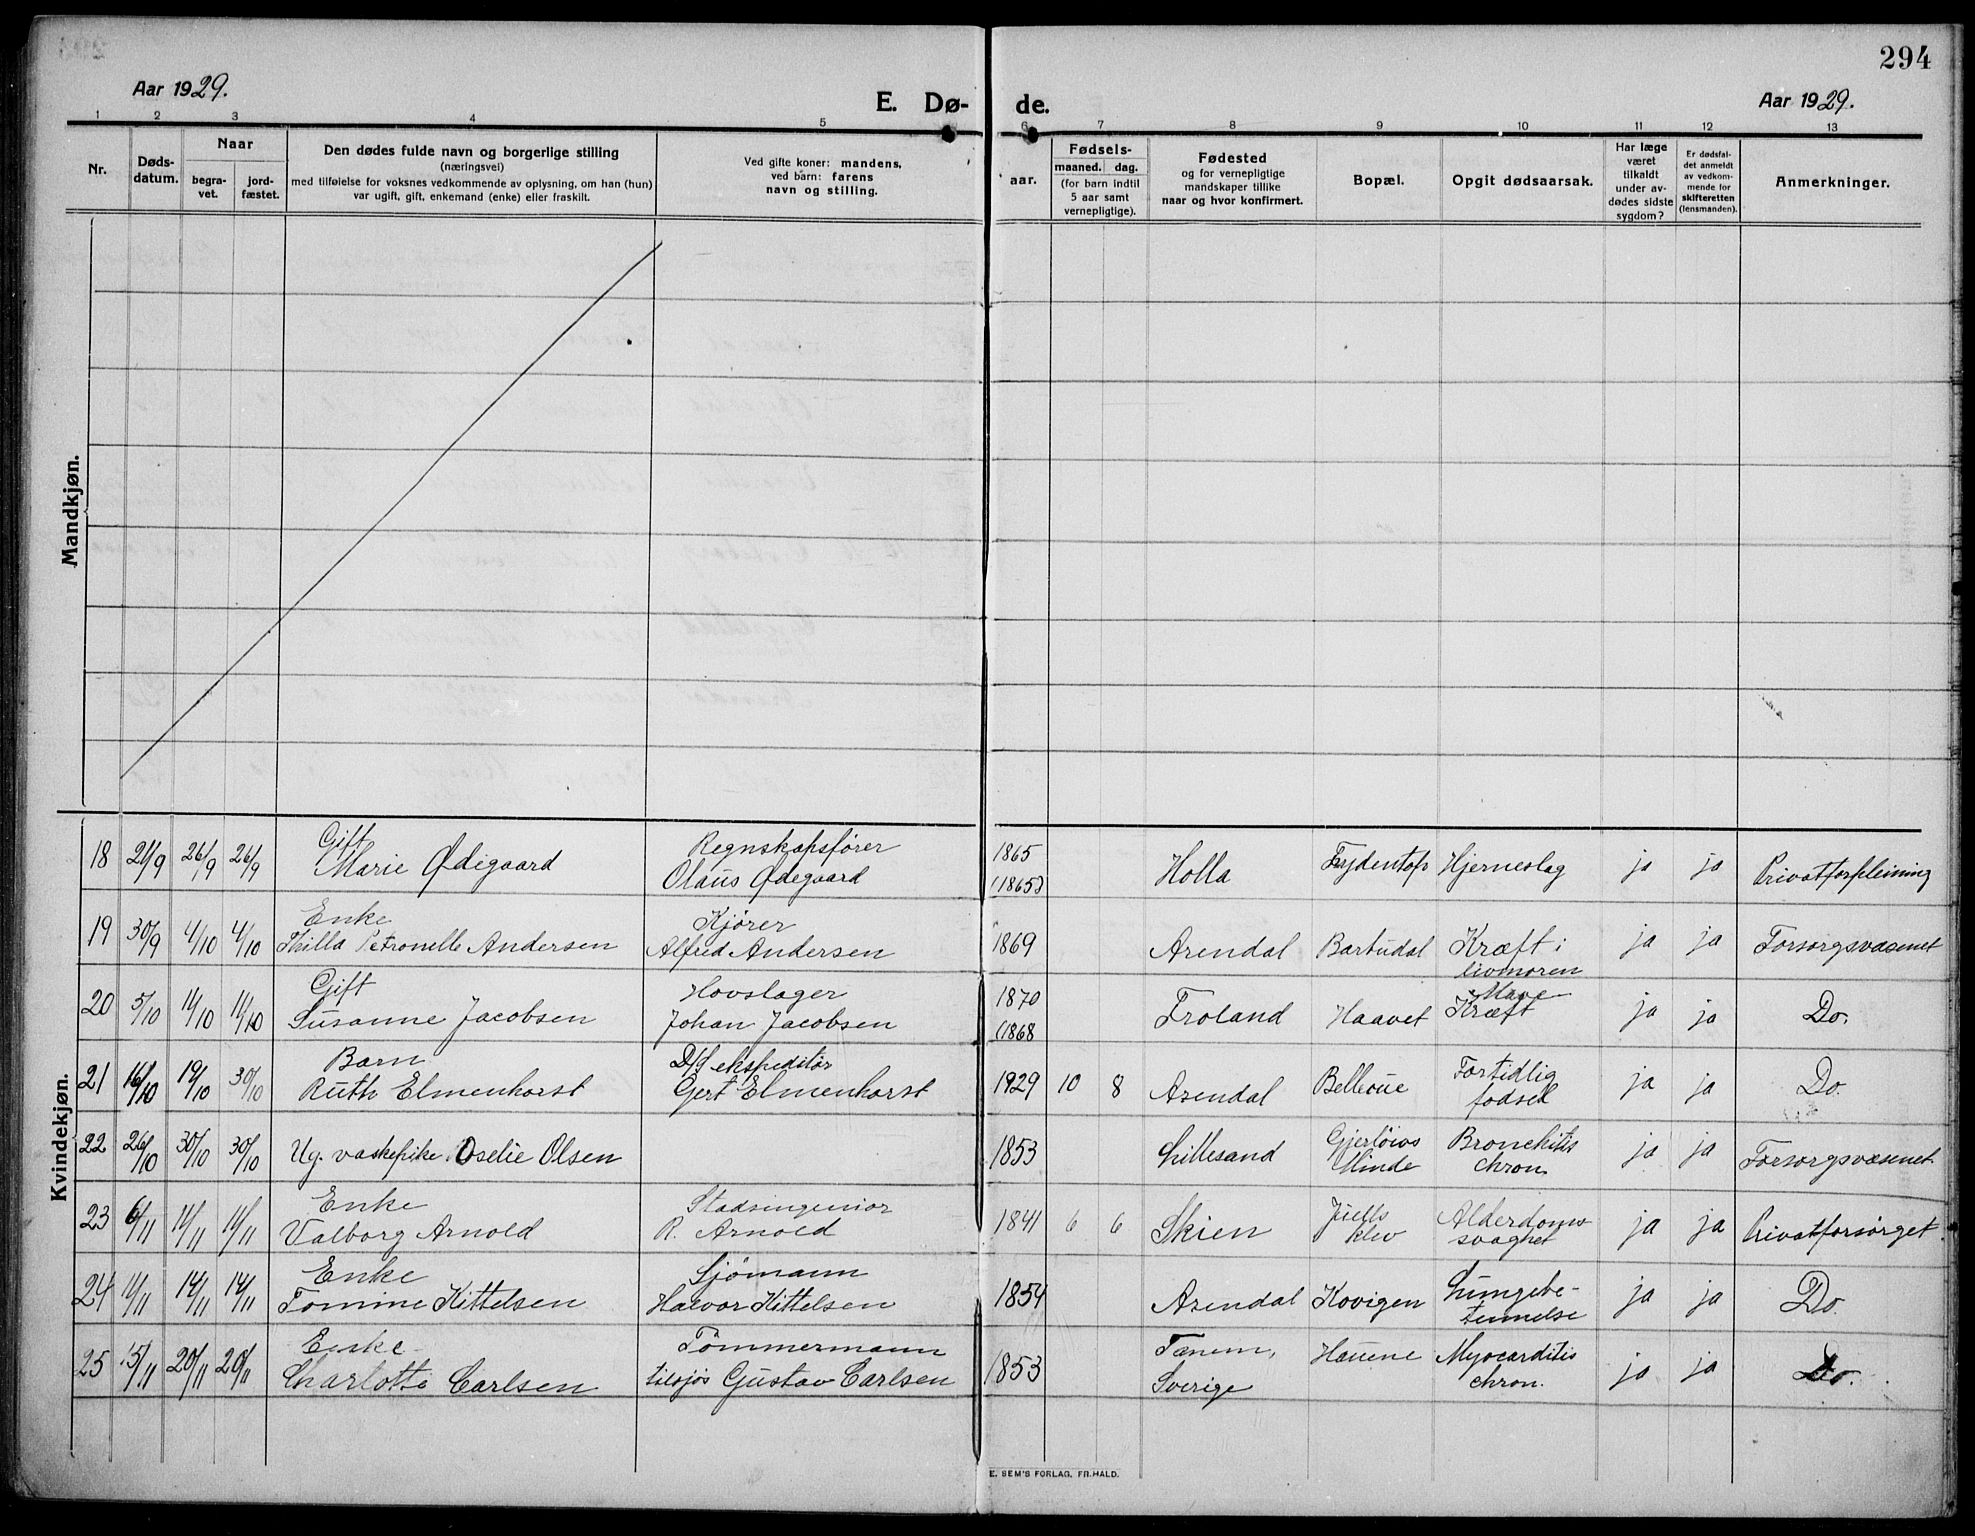 294
Aar 1929.
E. Dø-
de.
Aar 1929.
1 2 3 4 5 6 7 8 9 10 11 12 13
Nr.
Døds-
datum.
Naar
begra-
vet.
jord-
fæstet.
Den dødes fulde navn og borgerlige stilling
(næringsvei)
med tilføielse for voksnes vedkommende av oplysning, om han (hun)
var ugift, gift, enkemand (enke) eller fraskilt.
Ved gifte koner: mandens,
ved barn: farens
navn og stilling.
aar.
Fødsels-
maaned. dag.
(for barn indtil
5 aar samt
vernepligtige).
Fødested
og for vernepligtige
mandskaper tillike
naar og hvor konfirmert.
Bopæl.
Opgit dødsaarsak.
Har læge
været
tilkaldt
under av-
dødes sidste
sygdom?
Er dødsfal-
det anmeldt
av vedkom-
mende for
skifteretten
(lensmanden).
Anmerkninger.
Mandkjøn.
Kvindekjøn.
Gift Regnskapsfører 1865
18 21/9 26/9 26/9 Marie Ødegaard Olaus Ødegaard (1865) Holla Frydentop Hjerneslag ja ja Privatforpleining
Enke Kjører
19 30/9 4/10 4/10 Thilla Petronelle Andersen Alfred Andersen 1869 Arendal Barbudal Kræft i ja ja Forsorgsvæsenet
livmoren
Gift Hovslager 1870 Mave
20 5/10 11/10 11/10 Susanne Jacobsen Johan Jacobsen (1868 Froland Haavet Kræft ja ja Do.
Barn D/S ekspeditør Fortidlig
21 16/10 19/10 30/10 Ruth Elmenhorst Gert Elmenhorst 1929 10 8 Arendal Bellevue fødsel ja ja Do.
22 26/10 30/10 30/10 Ug. vaskepike Oselie Olsen 1853 Lillesand Gjerløws Bronchitis ja ja Forsorgsvæsenet
Minde chron.
Enke Stadsingeniør Juells Alderdoms-
23 6/11 11/11 11/11 Valborg Arnold R. Arnold 1841 6 6 Skien klev svaghet ja ja Privatforsørget
Enke Sjømann Lungebe-
24 11/11 14/11 14/11 Tomine Kittelsen Halvor Kittelsen 1854 Arendal Kovigen tennelse ja ja Do.
Enke Tømmermann Tanem, Myocarditis
25 15/11 20/11 20/11 Charlotte Carlsen tilsjøs Gustav Carlsen 1853 Sverige Hauene chron. ja ja Do.
E. SEM'S FORLAG. FR.HALD.